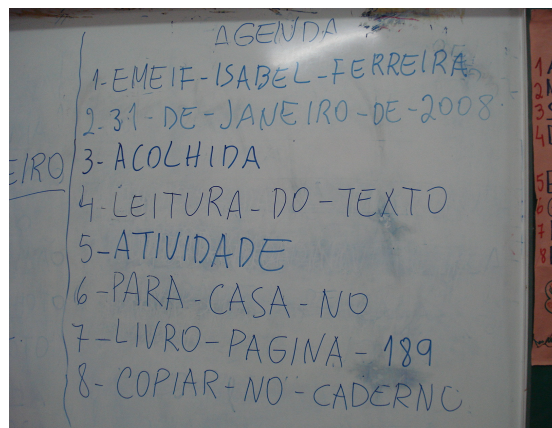 AGENDA
1-EMEIF-ISABEL-FERREIRA
2-31-DE-JANEIRO-DE-2008
3-ACOLHIDA
EIRO
4-LEITURA-DO-TEXTO
5-ATIVIDADE
6-PARA-CASA-NO
7-LIVRO-PAGINA-189
8-COPIAR-NO-CADERNO
1
2
3
4
5
6
7
8